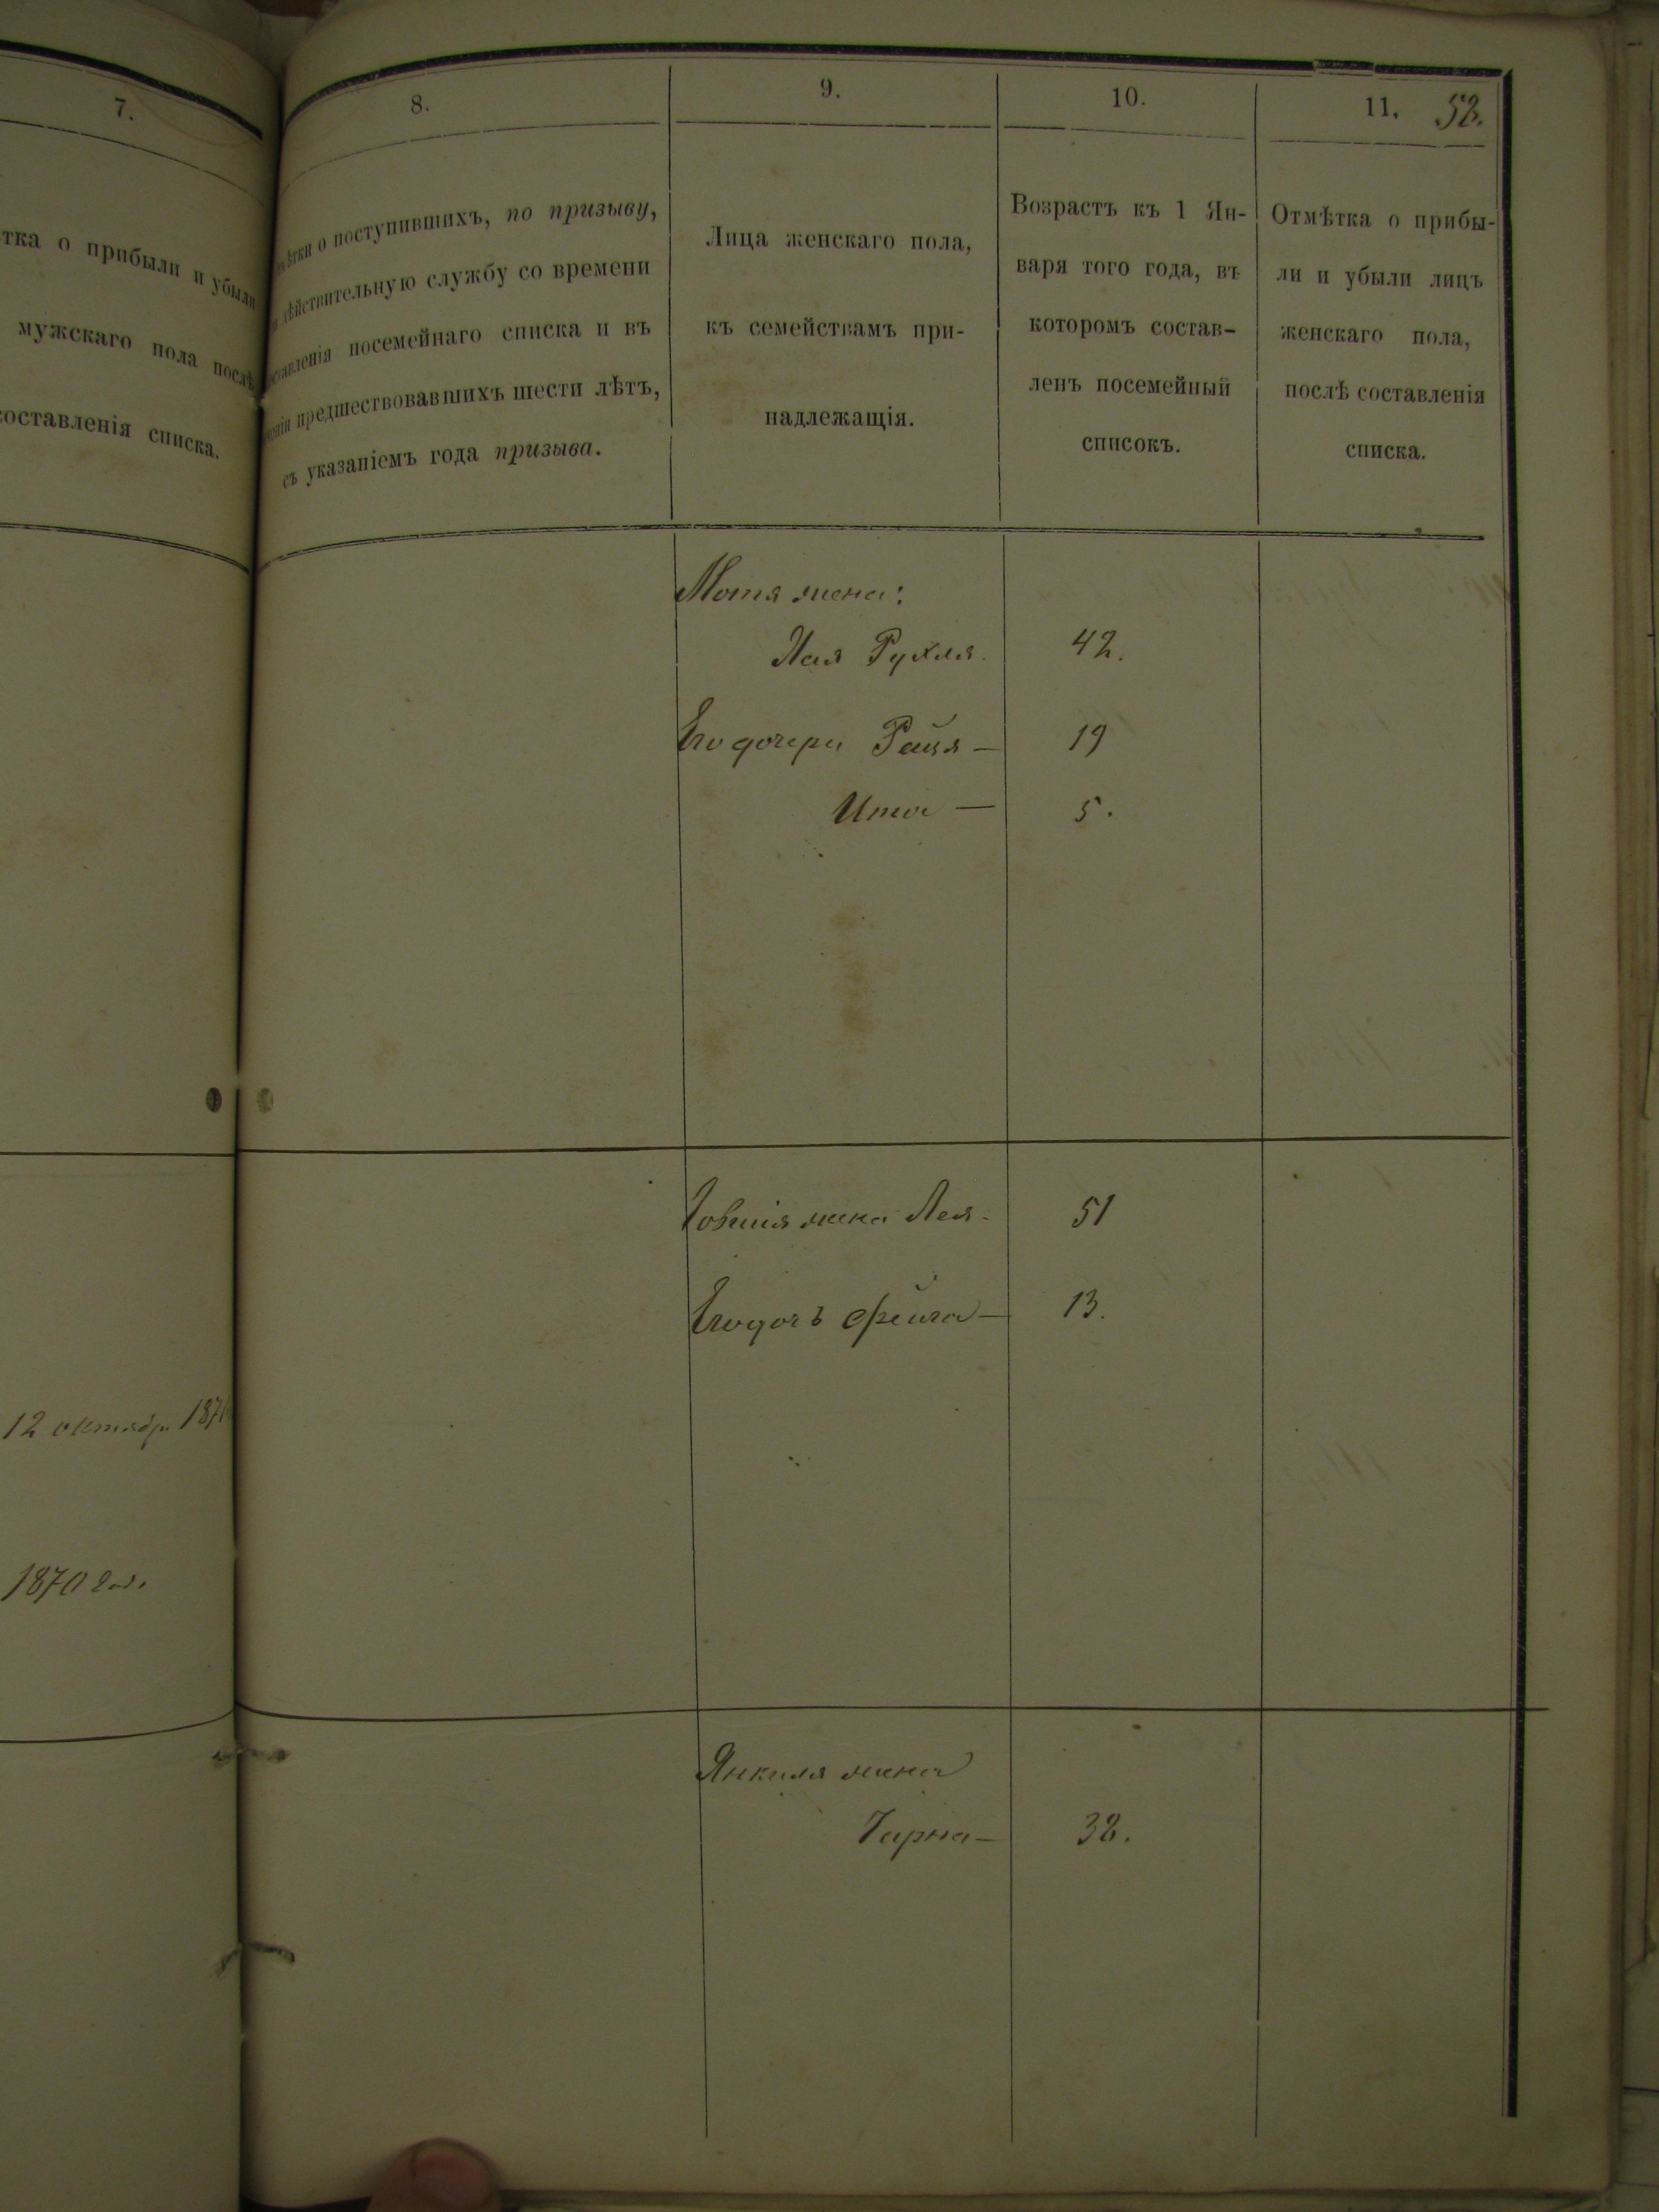 7.
тка о прибыли и убыли
мужскаго пола послѣ
составленія списка.
12 октября 187
1870 год.
8.
о поступившихъ, по призыву,
дѣйствительную службу со времени
составленія посемейнаго списка и въ
предшествовавшихъ шести лѣтъ,
съ указаніемъ года призыва.
9.
Лица женскаго пола,
къ семействамъ при-
надлежащія.
10.
Возрастъ къ 1 Ян-
варя того года, въ
которомъ состав-
ленъ посемейный
списокъ.
11. 52.
Отмѣтка о прибы-
ли и убыли лицъ
женскаго пола,
послѣ составленія
списка.
Мотя жена:
Хая Рухля. 42.
Его дочери Райя — 19
Ита — 5.
Іовшія жена Лея. 51
Его дочь Фейга — 13.
Янкеля жена
Чарна — 38.